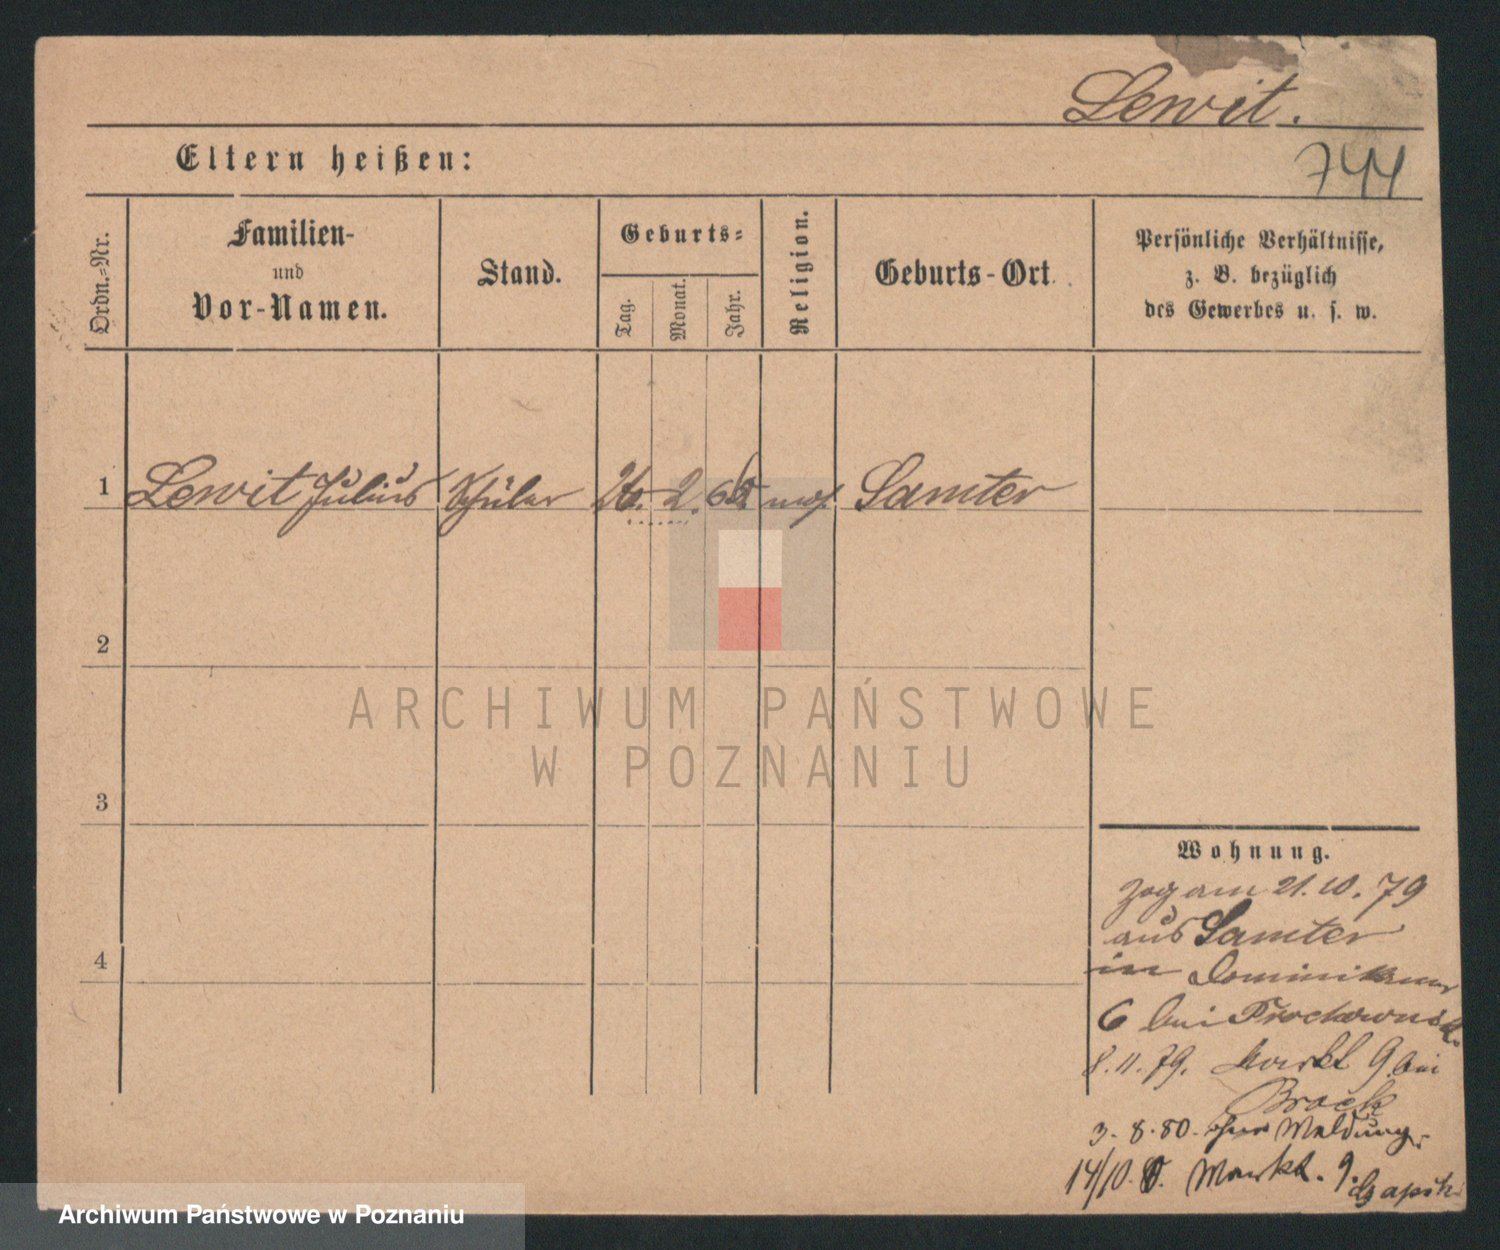 Lewit.
Eltern heißen:
744
Ordn.-Nr.
Familien-
und
Vor-Namen.
Stand.
Geburts-
Tag.
Monat.
Jahr.
Religion.
Geburts-Ort.
Persönliche Verhältnisse,
z. B. bezüglich
des Gewerbes u. s. w.
1 Lewit Julius Schüler 26. 2. mos. Samter
2
3
4
Wohnung.
Zog am 21.10.79
aus Samter
in Dominikaner
6 bei
8.11.79. Markt 9 bei
Brock
3.8.80. ohne Meldung.
14/10. Markt. 9.
ARCHIWUM PAŃSTWOWE
W POZNANIU
Archiwum Państwowe w Poznaniu